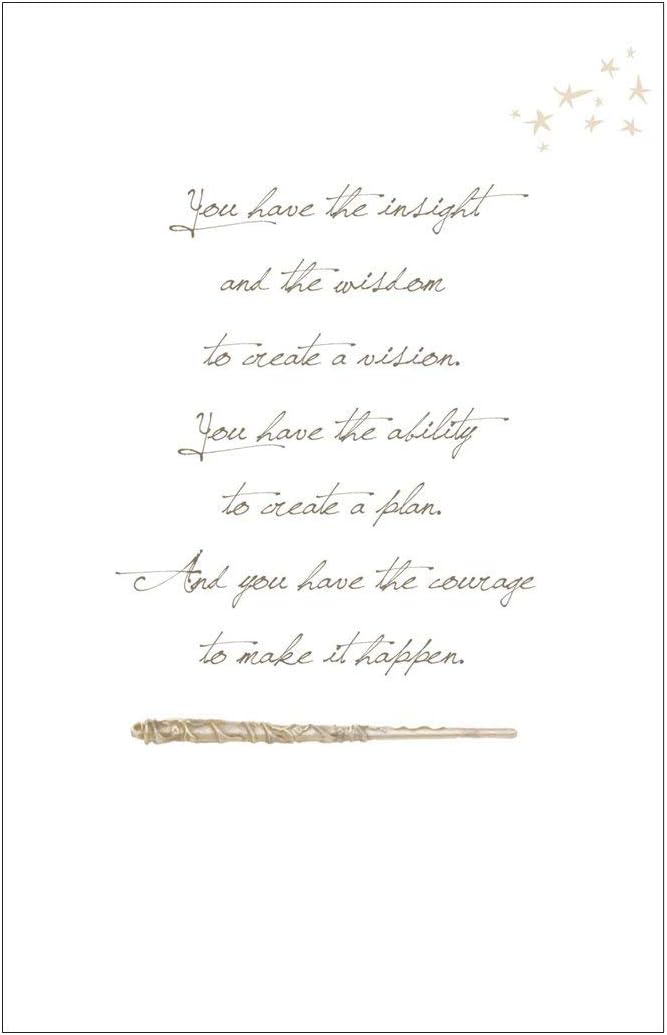 You have the insight
and the wisdom
to create a vision.
You have the ability
to create a plan.
And you have the courage
to make it happen.